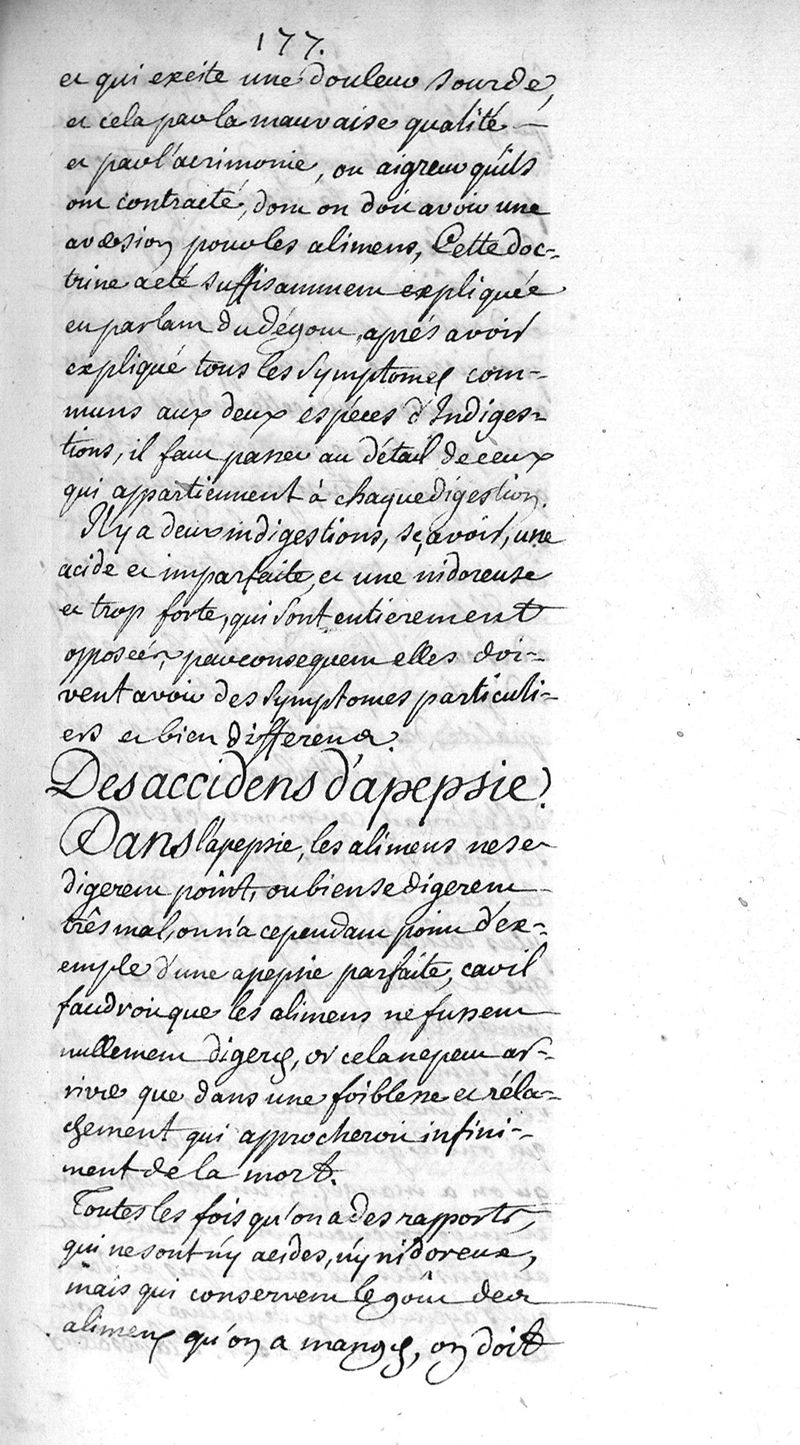 177.
et qui excite une douleur sourde,
et cela par la mauvaise qualité
et par l'acrimonie, ou aigreur qu'ils
ont contracté, dont on doit avoir une
aversion pour les alimens, Cette doc-
trine a eté suffisamment expliquée
en parlant du dégout, aprés avoir
expliqué tous les symptomes com-
muns aux deux espéces d'Indiges-
tions, il faut passer au détail de ceux
qui appartiennent à chaque digestion.
Il y a deux indigestions, sçavoir, une
acide et imparfaite, et une nidoreuse
et trop forte, qui sont entierement
opposées, par consequent elles doi-
vent avoir des symptomes particuli-
ers et bien differens.
Des accidens d'apepsie.
Dans l'apepsie, les alimens ne se
digerent point, ou bien se digerent
três mal, on n'a cependant point d'ex-
emple d'une apepsie parfaite, car il
faudroit que les alimens ne fussent
nullement digerés, or cela ne peut ar-
river que dans une foiblesse et réla-
chement qui approcheroit infini-
ment de la mort.
Toutes les fois qu'on a des rapports,
qui ne sont n'y acides, n'y nidoreux,
mais qui conservent le goût des
alimens qu'on a mangés, on doit